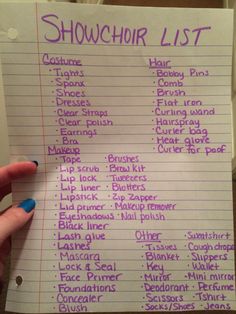 SHOWCHOIR LIST
Costume
· Tights
· Spanx
· Shoes
· Dresses
· Clear Straps
· Clear polish
· Earrings
· Bra
Hair
· Bobby Pins
· Comb
· Brush
· Flat iron
· Curling wand
· Hairspray
· Curler bag
· Heat glove
· Curler for poof
Makeup
· Tape
· Lip scrub
· Lip lock
· Lip liner
· Lipstick
· Lid primer
· Eyeshadows
· Black liner
· Lash glue
· Lashes
· Mascara
· Lock & Seal
· Face Primer
· Foundations
· Concealer
· Blush
· Brushes
· Brow kit
· Tweezers
· Blotters
· Zip Zapper
· Makeup remover
· Nail polish
Other
· Tissues
· Blanket
· Key
· Mirror
· Deodorant
· Scissors
· Socks/Shoes
· Sweatshirt
· Cough drops
· Slippers
· Wallet
· Mini mirror
· Perfume
· Tshirt
· Jeans